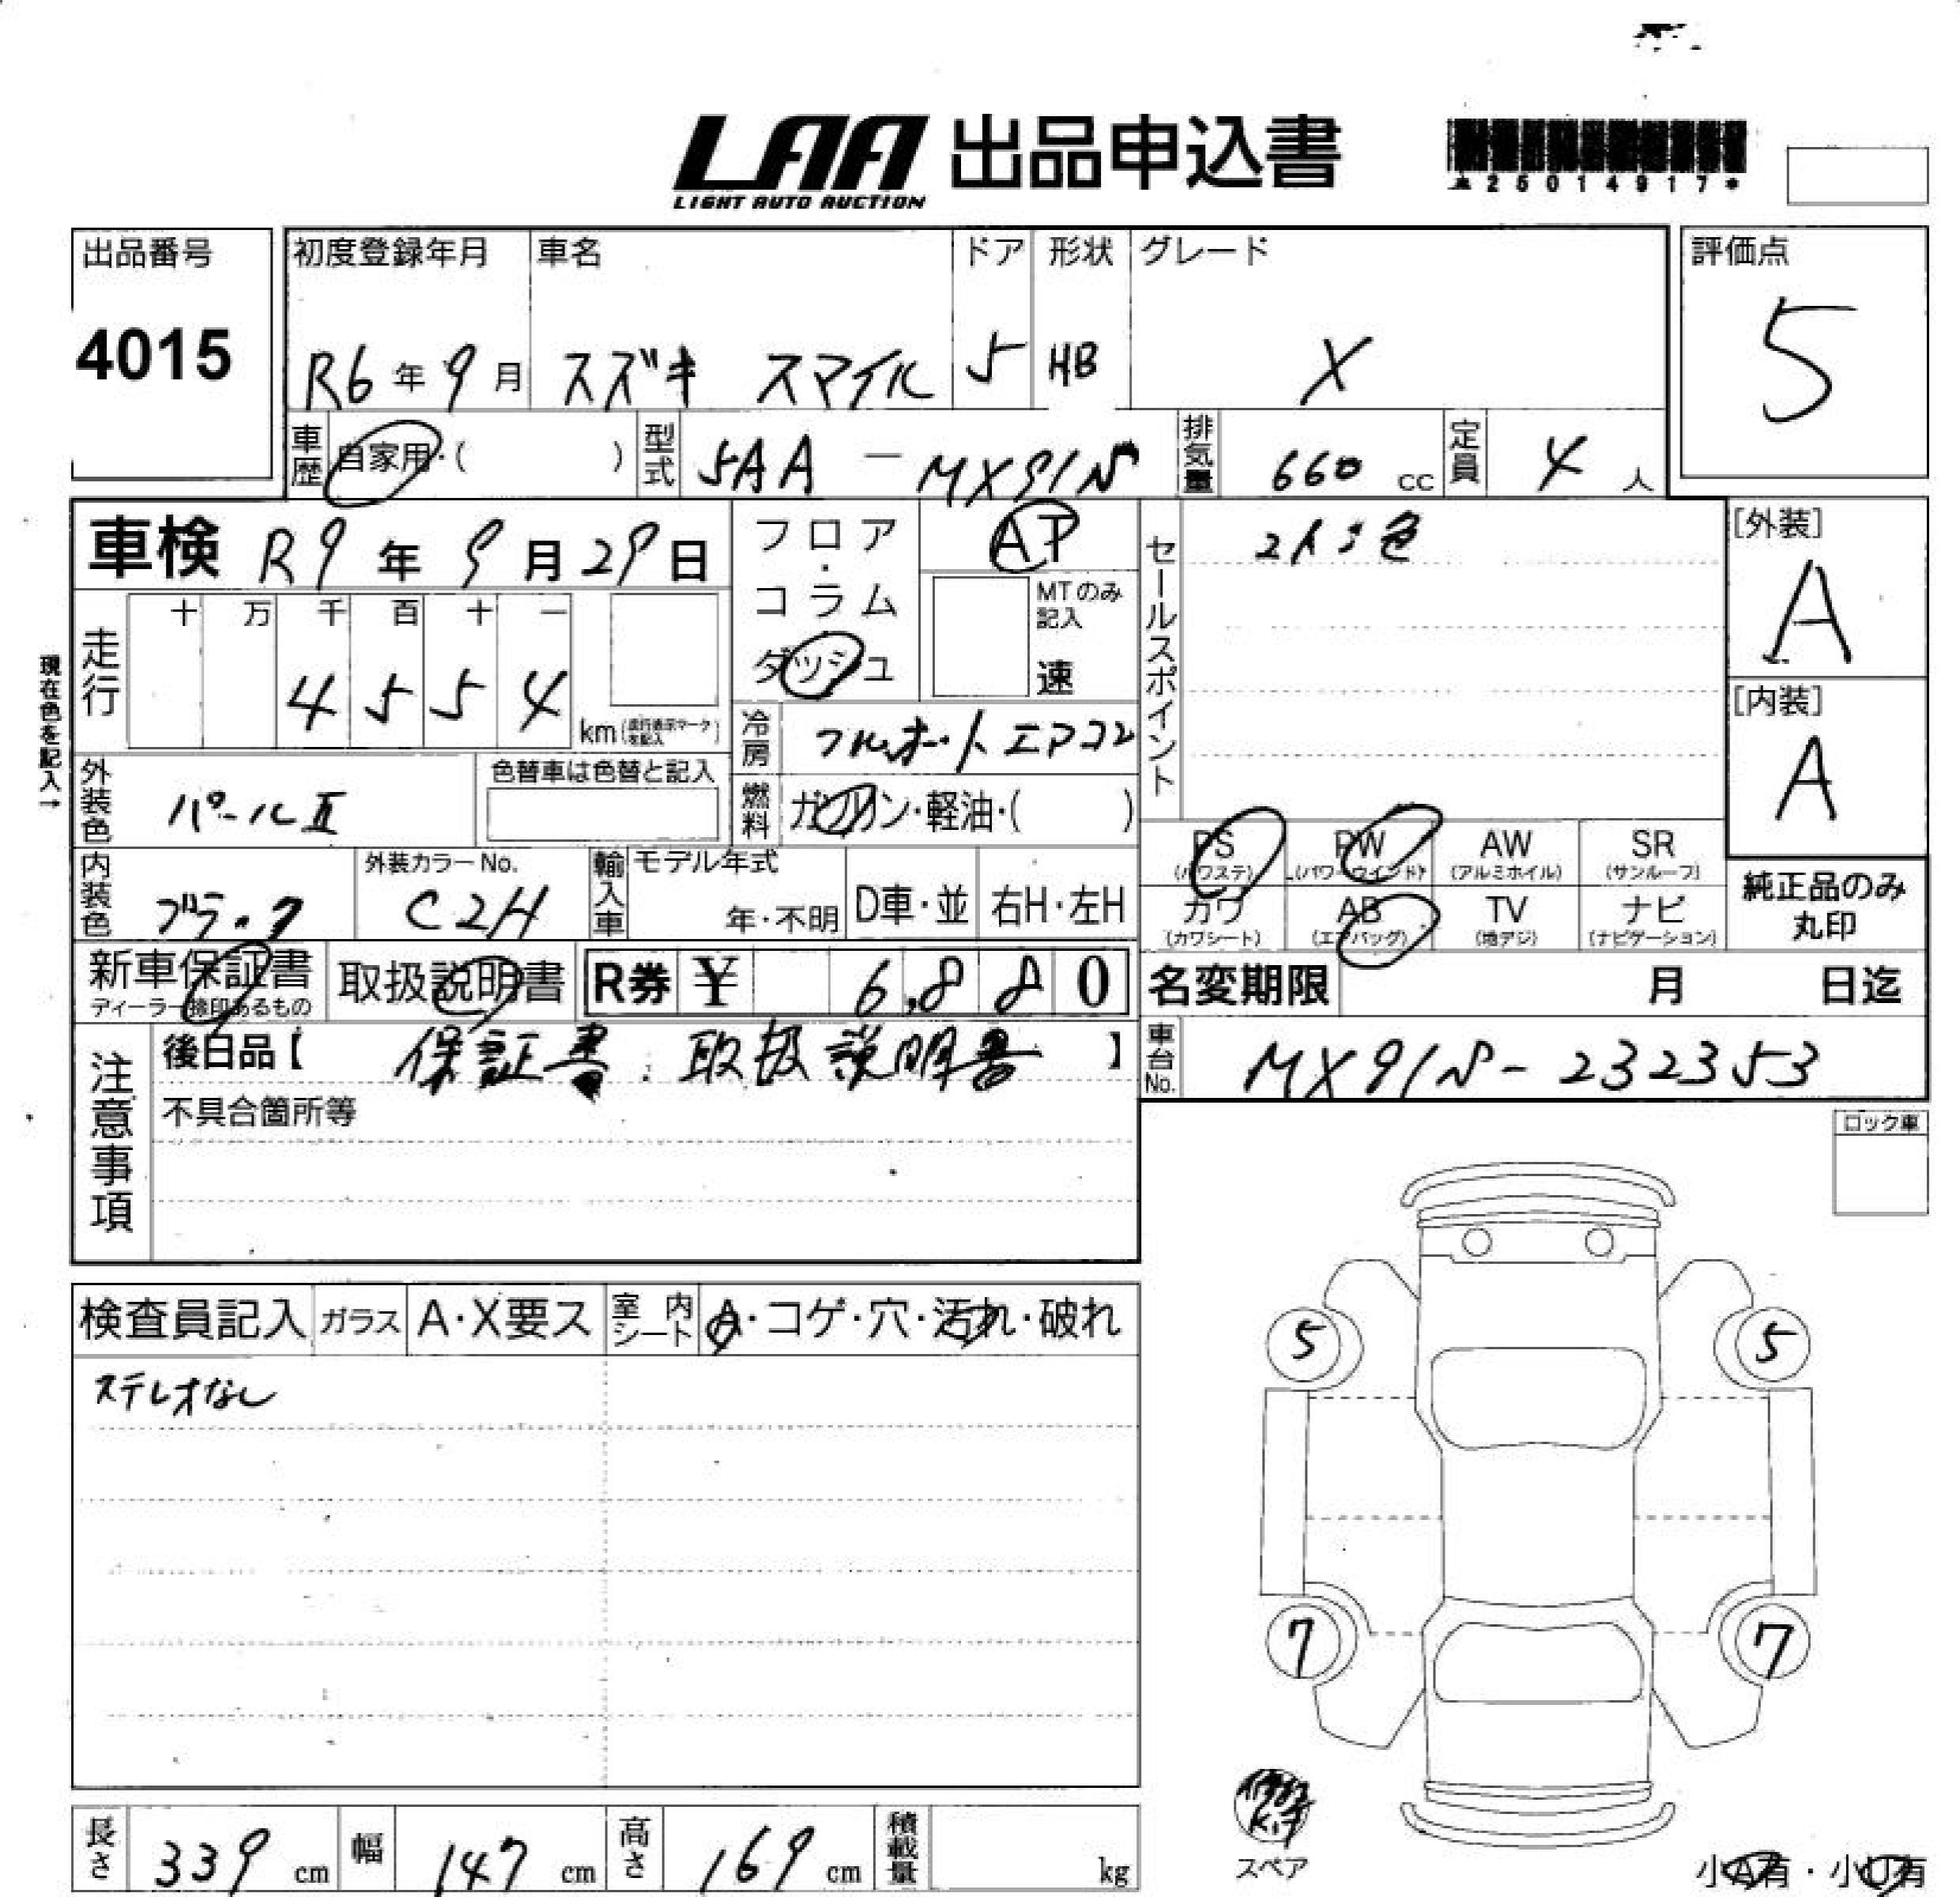 LAA 出品申込書
LIGHT AUTO AUCTION
*25014917*
出品番号
4015
初度登録年月 車名 ドア 形状 グレード
R6年9月 スズキ スマイル 5 HB X
評価点
5
車歴 自家用・( ) 型式 5AA-MX91N 排気量 660 cc 定員 4 人
車検 R9年9月29日
フロア・コラム ダッシュ
AT
MTのみ記入
速
セールスポイント
[外装]
A
[内装]
A
現在色を記入→
走行 十 万 千 百 十 一
4 5 5 4 km
冷房 フルオートエアコン
外装色 パールII 色替車は色替と記入
燃料 ガソリン・軽油・( )
PS (パワステ) PW (パワーウインド) AW (アルミホイル) SR (サンルーフ)
カワ (カワシート) AB (エアバッグ) TV (地デジ) ナビ (ナビゲーション)
純正品のみ丸印
内装色 ブラック 外装カラーNo. C2H 輸入車 モデル年式 年・不明 D車・並 右H・左H
新車保証書 ディーラー捺印あるもの 取扱説明書 R券 ¥ 6,880
名変期限 月 日迄
注意事項
後日品【 保証書.取扱説明書 】
車台No. MX91N-232353
不具合箇所等
ロック車
検査員記入 ガラス A・X要ス 室内シート A・コゲ・穴・汚れ・破れ
ステレオなし
5 5
7 7
スペア
長さ 339 cm 幅 147 cm 高さ 169 cm 積載量 kg
小A有・小U有